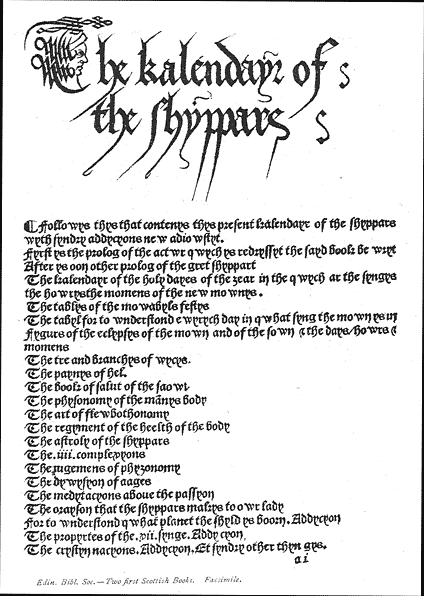 The kalendayr of
the shyppars
Followys thys that contenys thys present kalendayr of the shyppars
wyth syndry addycyons new adiowstyt.
Fyrst ys the prolog of the actwr qwych ys redryssyt the sayd book be wryt
After ys oon other prolog of the gret shyppart
The kalendayr of the holy dayes of the zear in the qwych ar the syngys
the howrys the momens of the new mownys.
The tablys of the mowabyls festys
The tabyl for to wnderstond ewyrych day in qwhat syng the mown ys in
Fygurs of the eclypsys of the mown and of the sown & the days/howrs &
momens
The tre and branchys of wycys.
The paynys of hel.
The book of salut of the saowl
The physonomy of the mannys body
The art of flewbothonomy
The regyment of the heelth of the body
The astroly of the shyppars
The.iiii.complexyons
The jugemens of physonomy
The dywysyon of aages
The medytacyons aboue the passyon
The orayson that the shyppars makys to owr lady
For to wnderstond qwhat planet the shyld ys boorn. Addycyon
The propyrtes of the.xii.synge. Addycyon.
The crystyn nacyons. Addycyon. Et syndry other thyngys.
ai
Edin. Bibl. Soc.—Two first Scottish Books. Facsimile.